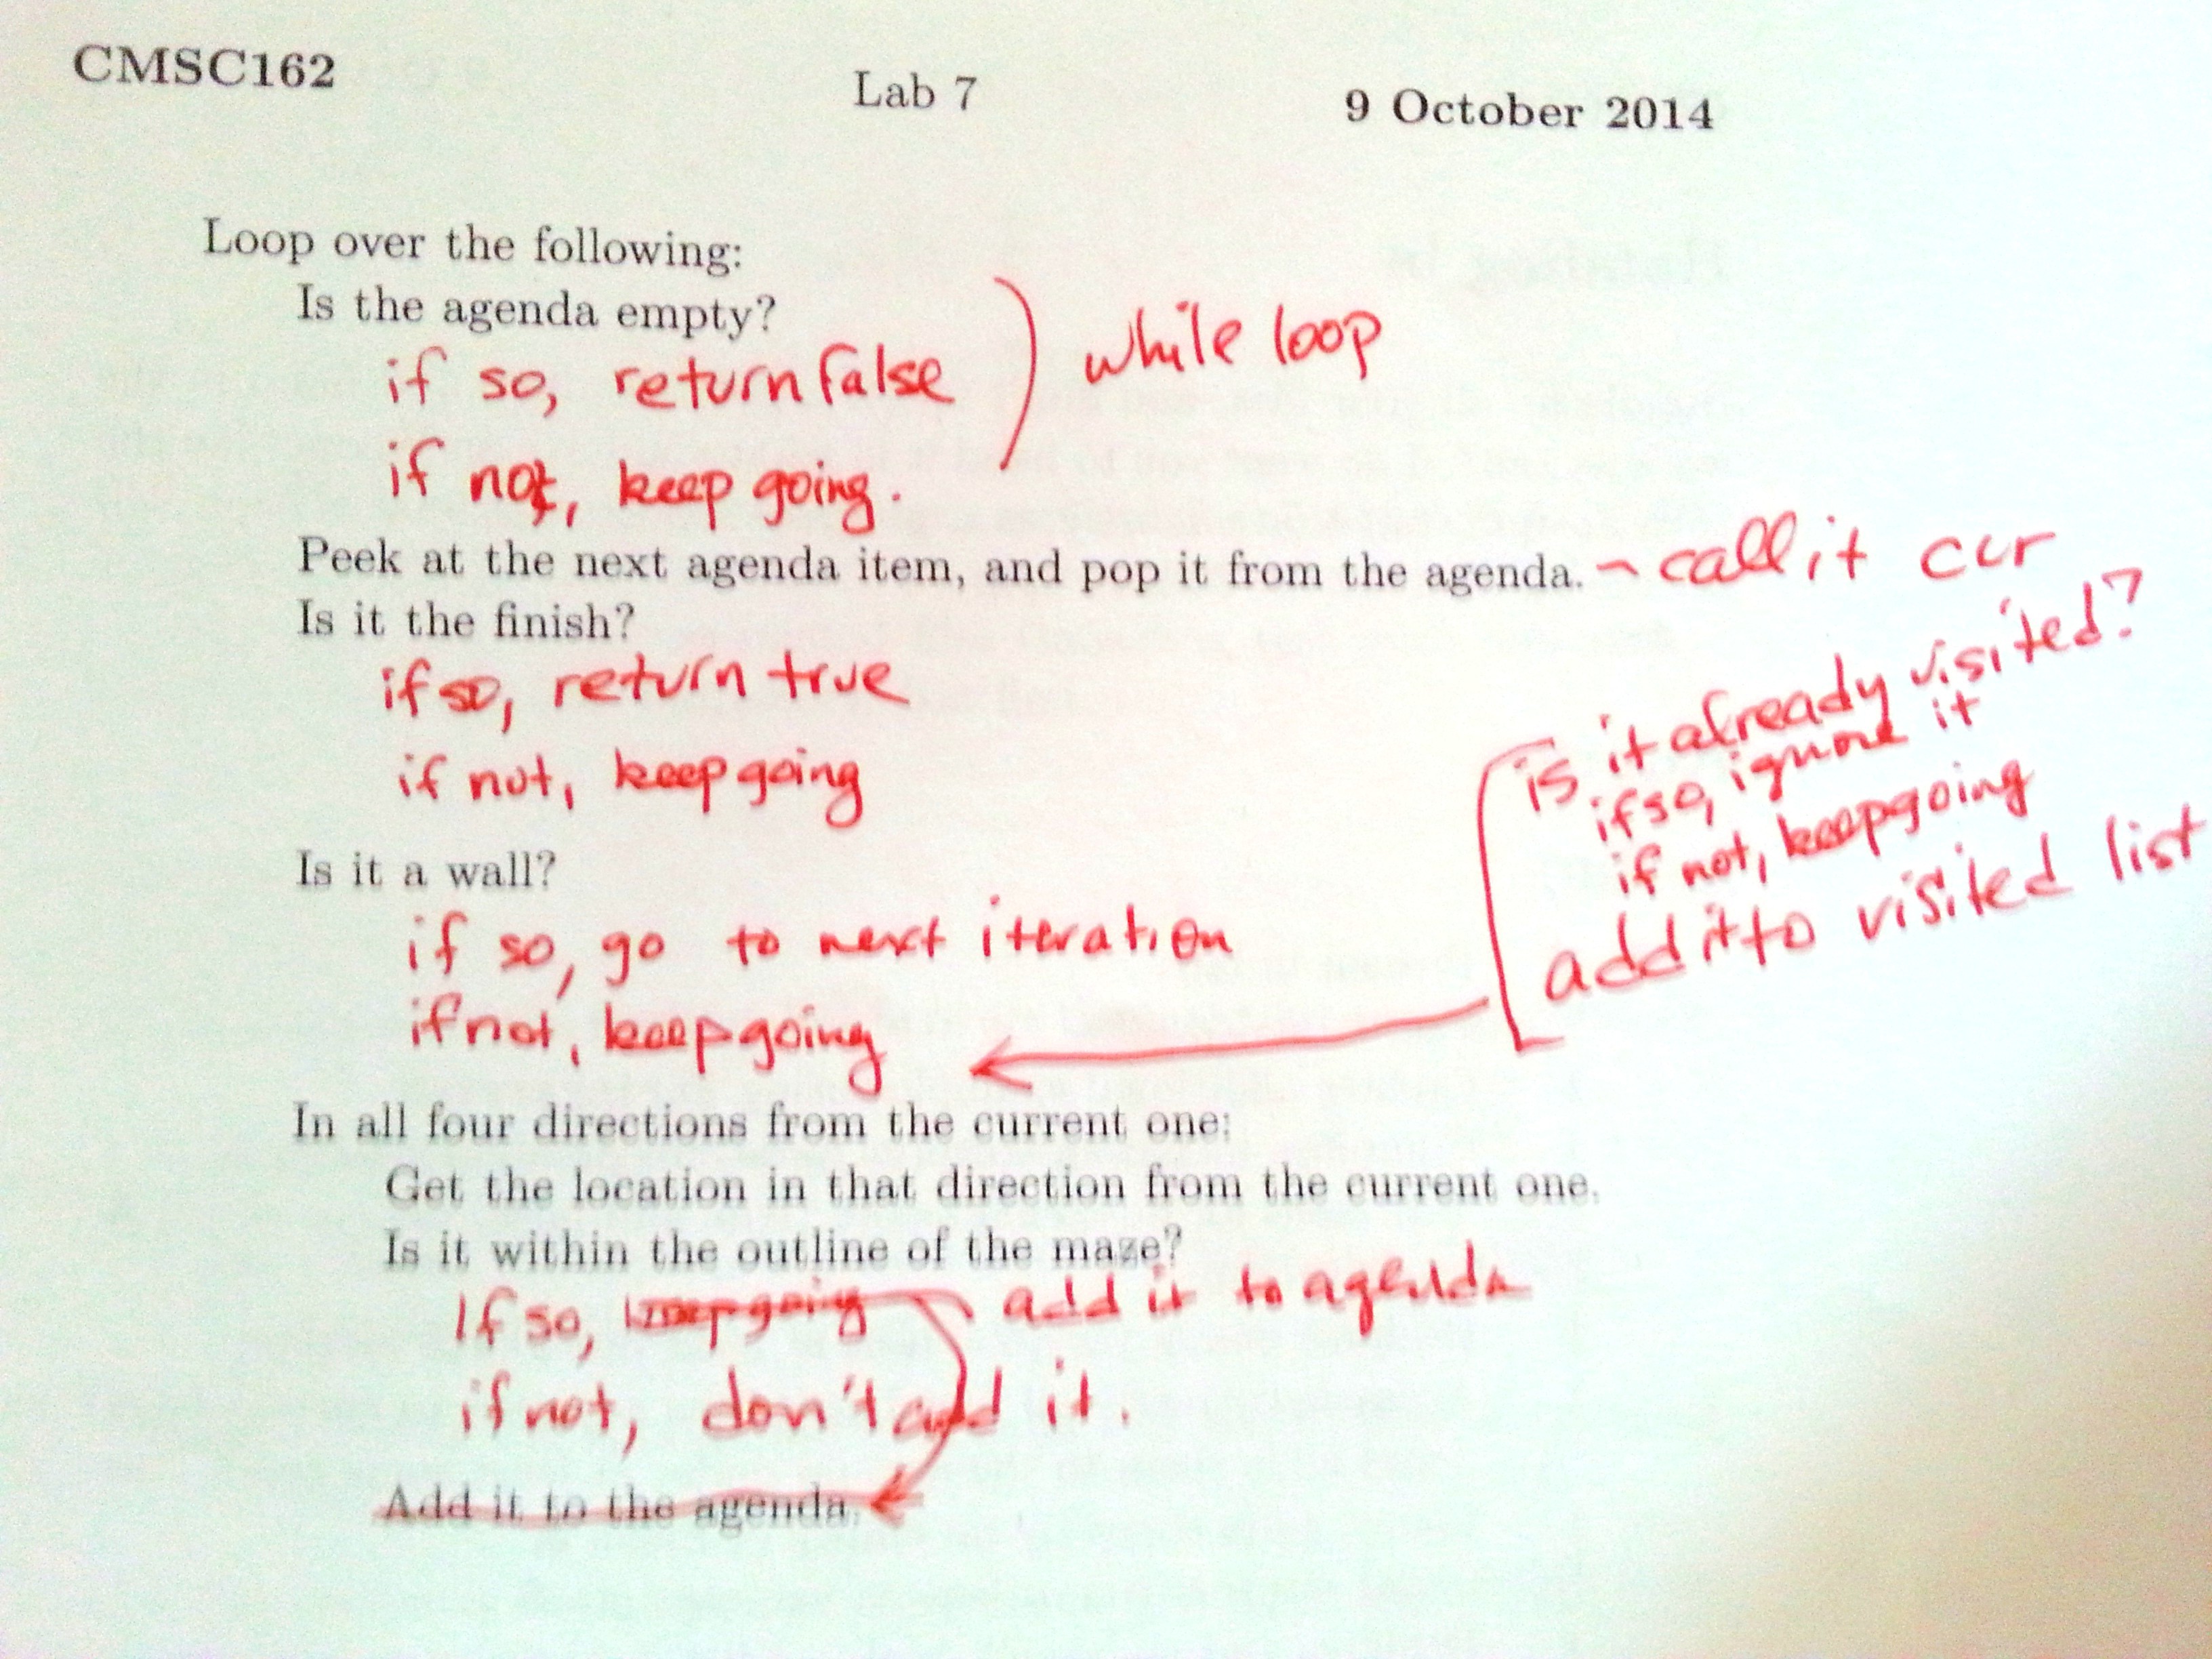 CMSC162 Lab 7 9 October 2014
Loop over the following:
Is the agenda empty?
if so, return false
while loop
if not, keep going.
Peek at the next agenda item, and pop it from the agenda. – call it cur
Is it the finish?
if so, return true
if not, keep going
is it already visited?
if so, ignore it
if not, keep going
add it to visited list
Is it a wall?
if so, go to next iteration
if not, keep going
In all four directions from the current one:
Get the location in that direction from the current one.
Is it within the outline of the maze?
If so, keep going add it to agenda
if not, don't add it.
Add it to the agenda.